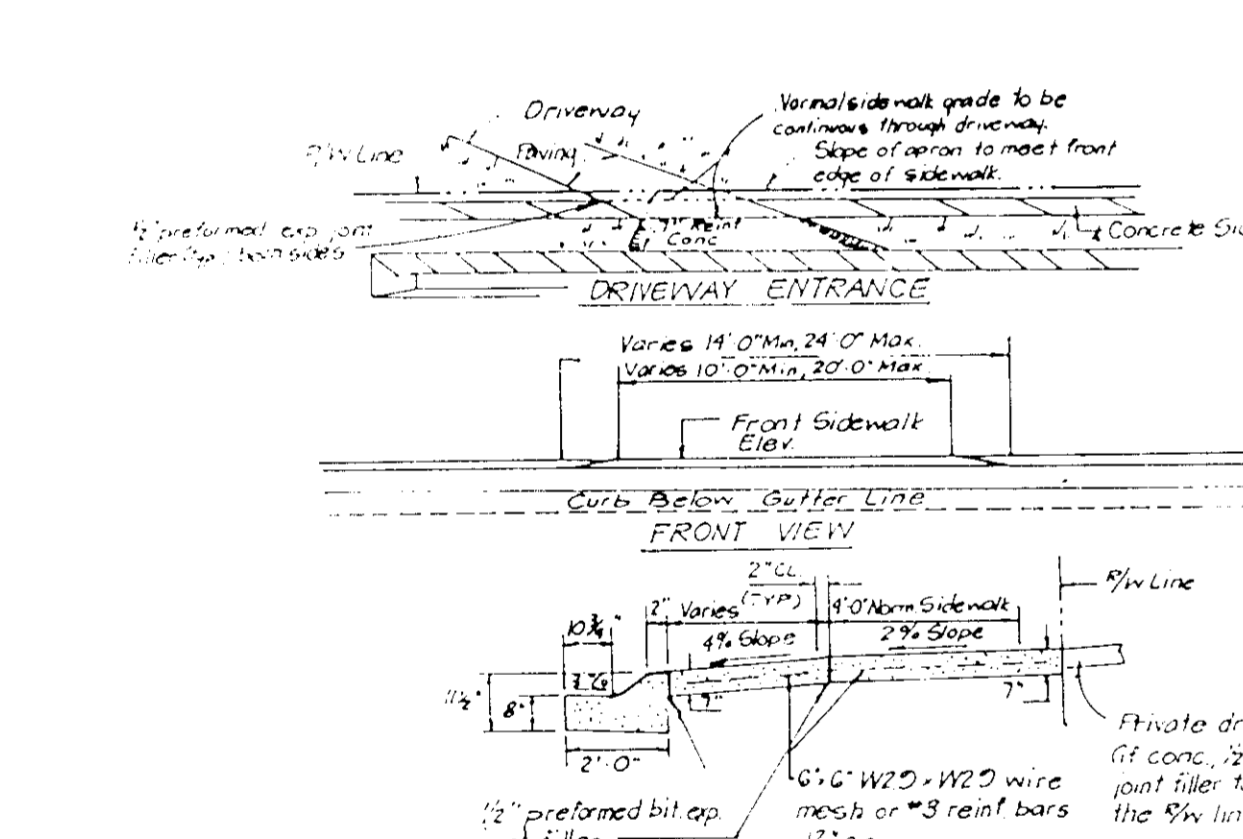 Driveway
Normal sidewalk grade to be
continuous through driveway.
R/W Line
Paving
Slope of apron to meet front
edge of sidewalk.
1/2" preformed exp joint
filler (typ) both sides
7" Reint
Conc
Concrete Sid
DRIVEWAY ENTRANCE
Varies 14'-0" Min, 24'-0" Max.
Varies 10'-0" Min, 20'-0" Max
Front Sidewalk
Elev.
Curb Below Gutter Line
FRONT VIEW
2" CL.
(TYP)
R/W Line
10 3/4"
2"
Varies
4'-0" Norm. Sidewalk
4% Slope
2% Slope
11 1/2"
8"
7"
7"
2'-0"
Private dr
(if conc., 1/2
joint filler t
the R/W lin
6", 6" W2.9 x W2.9 wire
mesh or #3 reinf. bars
12"
1/2" preformed bit. exp.
filler